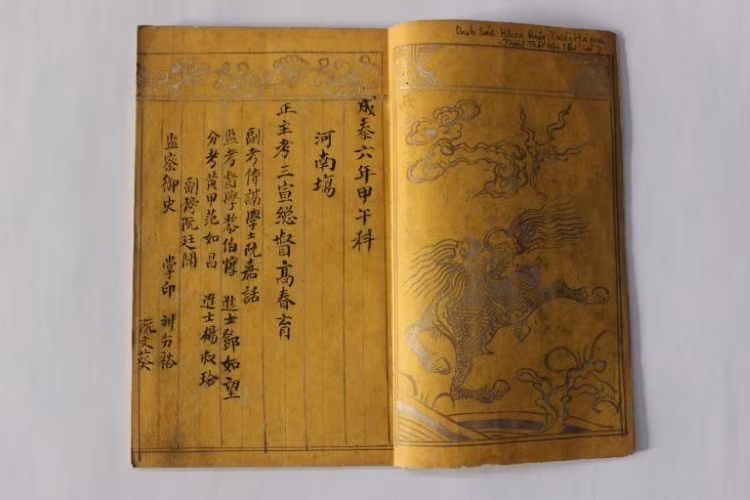 Danh Sách Khoa Trường Hà nam
Thành Thái năm Thứ
成泰六年甲午科
河南塲
正主考三宣總督高春育
副考侍講學士阮嘉話
監考督學黎伯 進士鄧如望
分考黃甲范如昌 進士楊叔
副榜阮廷
監察御史 掌印
阮文葵